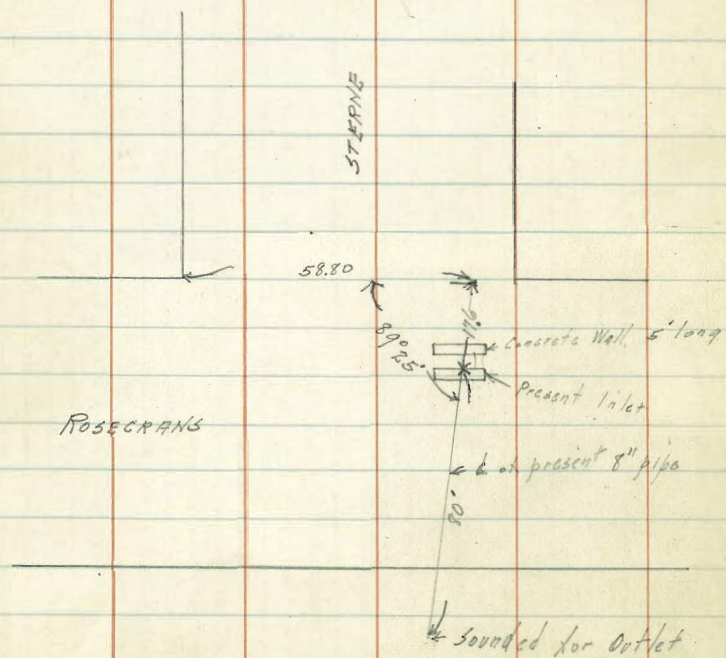 STERNE
58.80
17.6
89° 25'
Concrete Wall 5' long
Present Inlet
ROSECRANS
℄ of present 8" pipe
80'
Sounded for Outlet